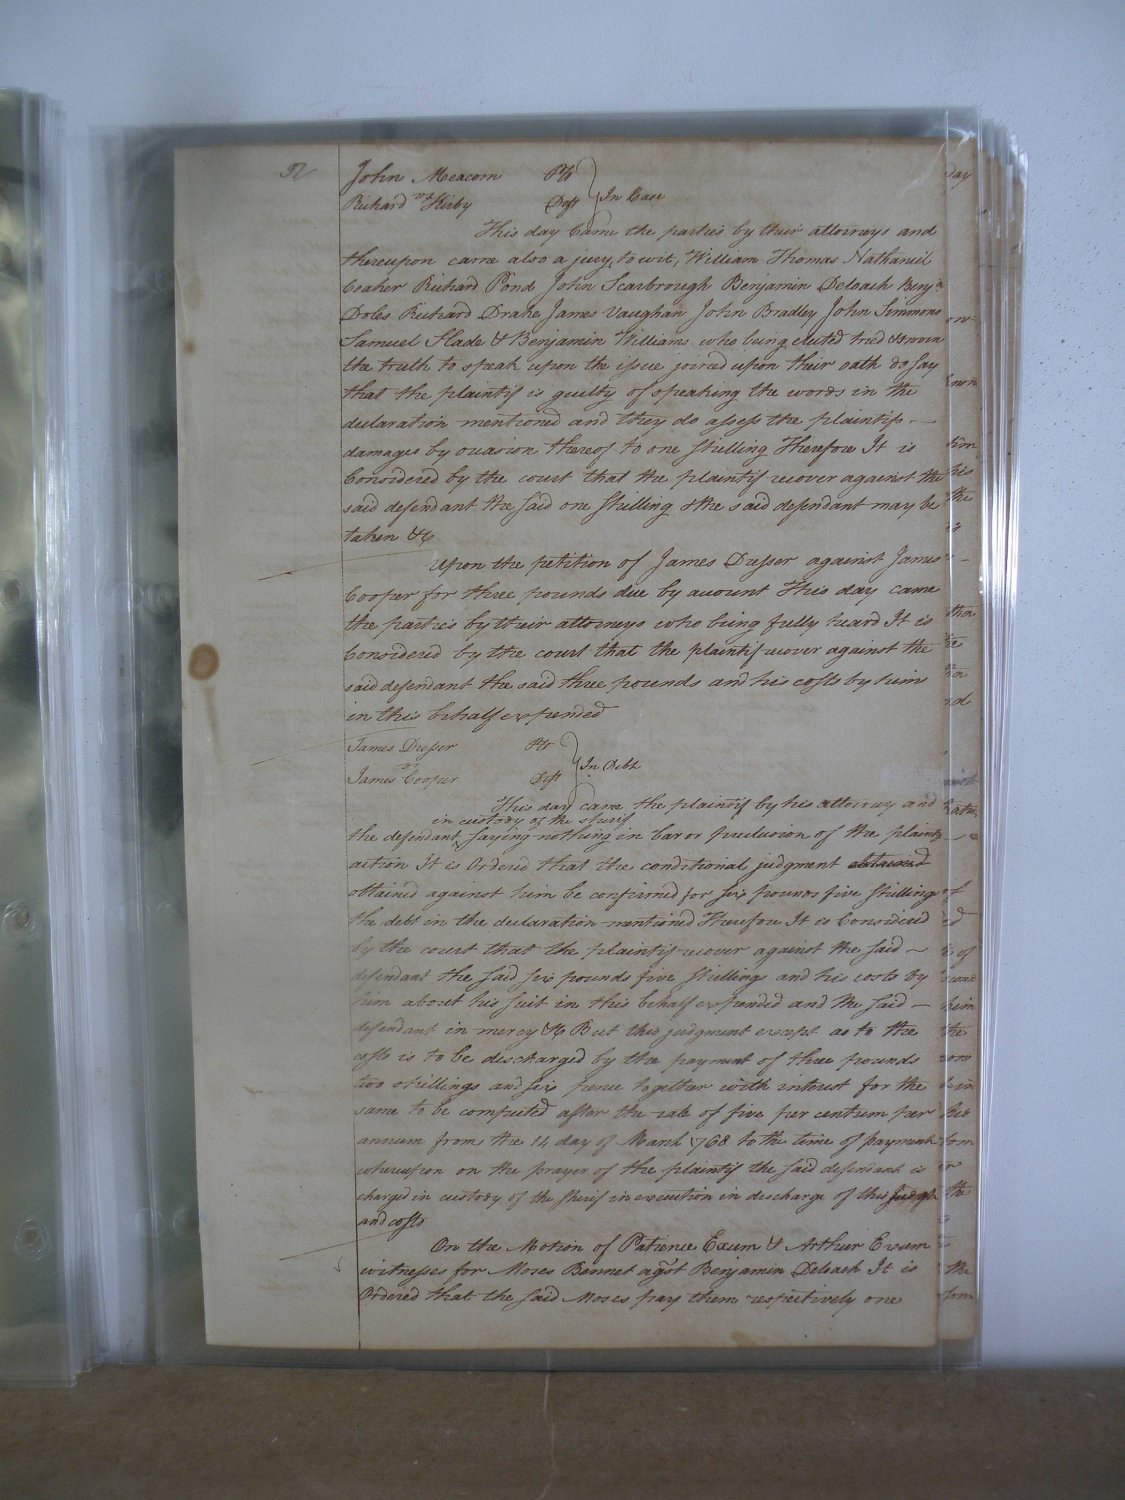 John Meacom Plt
vs In Case
Richard Kirby Deft
This day Came the parties by their attorneys and
thereupon came also a jury, to wit, William Thomas Nathaniel
Coaker Richard Pond John Scarbrough Benjamin Deloach Benja
Doles Richard Drake James Vaughan John Bradley John Simmons
Samuel Slade & Benjamin Williams who being elected tried & sworn
the truth to speak upon the issue joined upon their oath do say
that the plaintif is guilty of speaking the words in the
declaration mentioned and they do assess the plaintifs -
damages by occasion thereof to one shilling Therefore It is
Considered by the court that the plaintif recover against the
said defendant the said one shilling & the said defendant may be
taken &c
Upon the petition of James Dresser against James
Cooper for three pounds due by account This day came
the parties by their attorneys who being fully heard It is
Considered by the court that the plaintif recover against the
said defendant the said three pounds and his costs by him
in this behalf expended
James Dresser Plt
vs In Debt
James Cooper Deft
This day came the plaintif by his attorney and
in custody of the sherif
the defendant saying nothing in bar or preclusion of the plaintifs
action It is Ordered that the conditional judgment obtained
obtained against him be confirmed for six pounds five shillings
the debt in the declaration mentioned Therefore It is Considered
by the court that the plaintif recover against the said -
defendant the said six pounds five shillings and his costs by
him about his suit in this behalf expended and the said -
defendant in mercy &c But this judgment except as to the
costs is to be discharged by the payment of three pounds
two shillings and six pence together with interest for the
same to be computed after the rate of five per centum per
annum from the 14 day of March 1768 to the time of payment
whereupon on the prayer of the plaintif the said defendant is
charged in custody of the sherif in execution in discharge of this judgt
and costs
On the Motion of Patience Exum & Arthur Exum
witnesses for Moses Bennet agst Benjamin Deloach It is
Ordered that the said Moses pay them respectively one